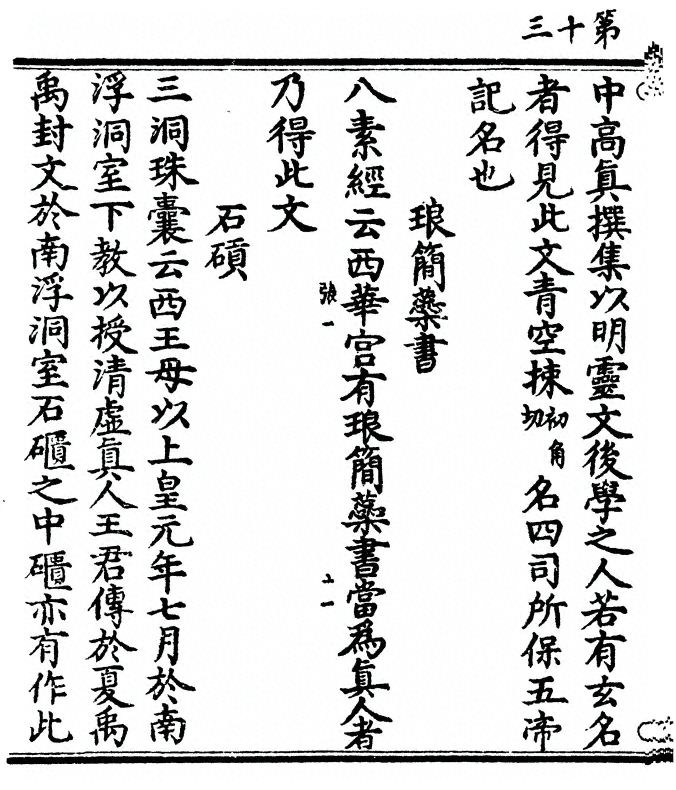 第十三
中高眞撰集以明靈文後學之人若有玄名
者得見此文青空揀初角切名四司所保五帝
記名也
琅簡蘂書
八素經云西華宮有琅簡蘂書當爲眞人者
張一
乃得此文
石磧
三洞珠囊云西王母以上皇元年七月於南
浮洞室下教以授清虛眞人王君傳於夏禹
禹封文於南浮洞室石礩之中礩亦有作此